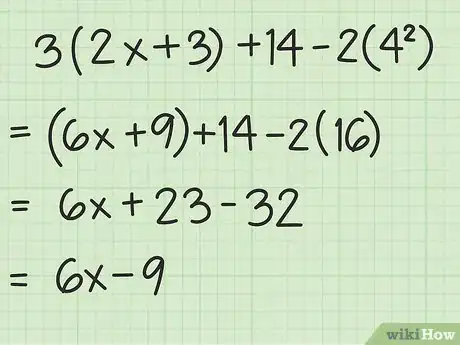 3(2x+3)+14-2(4²)
= (6x+9)+14-2(16)
= 6x+23-32
= 6x-9
wikiHow